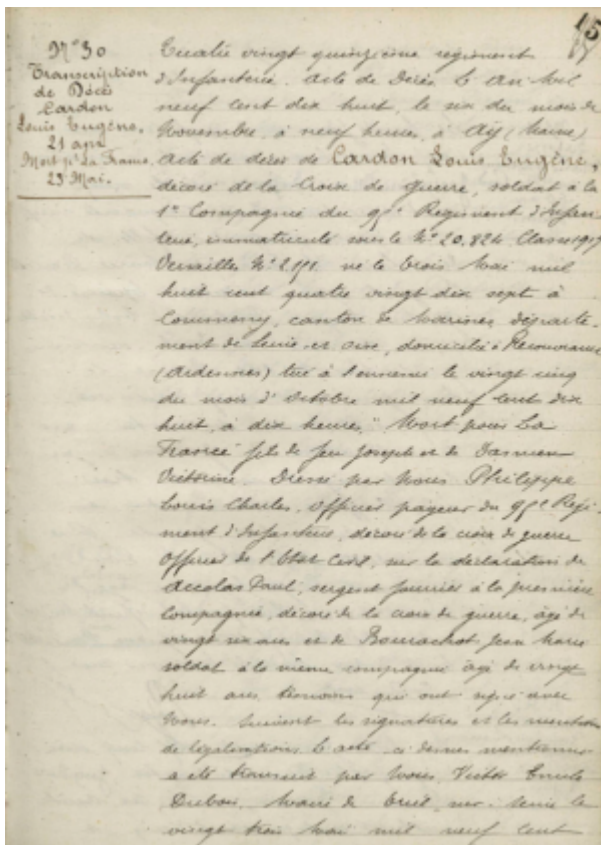 15
N° 30
Transcription
de Décès
Cardon
Louis Eugène,
21 ans
Mort pr La France.
23 Mai.
Quatre vingt quinzième régiment
d'Infanterie. Acte de Décès. L'An Mil
neuf cent dix huit, le six du mois de
Novembre, à neuf heures, à Aÿ (Marne)
Acte de décès de Cardon Louis Eugène,
décoré de la Croix de guerre, soldat à la
1re Compagnie du 95e Régiment d'Infan
terie, immatriculé sous le N° 20.824 Classe 1917
Versailles N° né le trois Mai mil
huit cent quatre vingt dix sept à
Commeny, canton de Marines départe-
ment de Seine et Oise, domicilié à Recouvrance
(Ardennes) tué à l'ennemi le vingt cinq
du mois d'Octobre mil neuf cent dix
huit, à dix heures, "Mort pour La
France" fils de feu Joseph et de
Victorine. Dressé par Nous Philippe
Louis Charles, Officier payeur du 95e Régi-
ment d'Infanterie, décoré de la croix de guerre
Officier de l'Etat Civil, sur la déclaration de
Accolas Paul, sergent fourrier à la première
Compagnie, décoré de la croix de guerre, âgé de
vingt six ans et de Bourachot Jean Marie
soldat à la même compagnie âgé de vingt
huit ans, témoins qui ont signé avec
Nous. Suivent les signatures et les mentions
de légalisations. L'acte ci dessus mentionné
a été transcrit par Nous Victor Emile
Dubois, Maire de sur Seine le
vingt trois Mai mil neuf cent